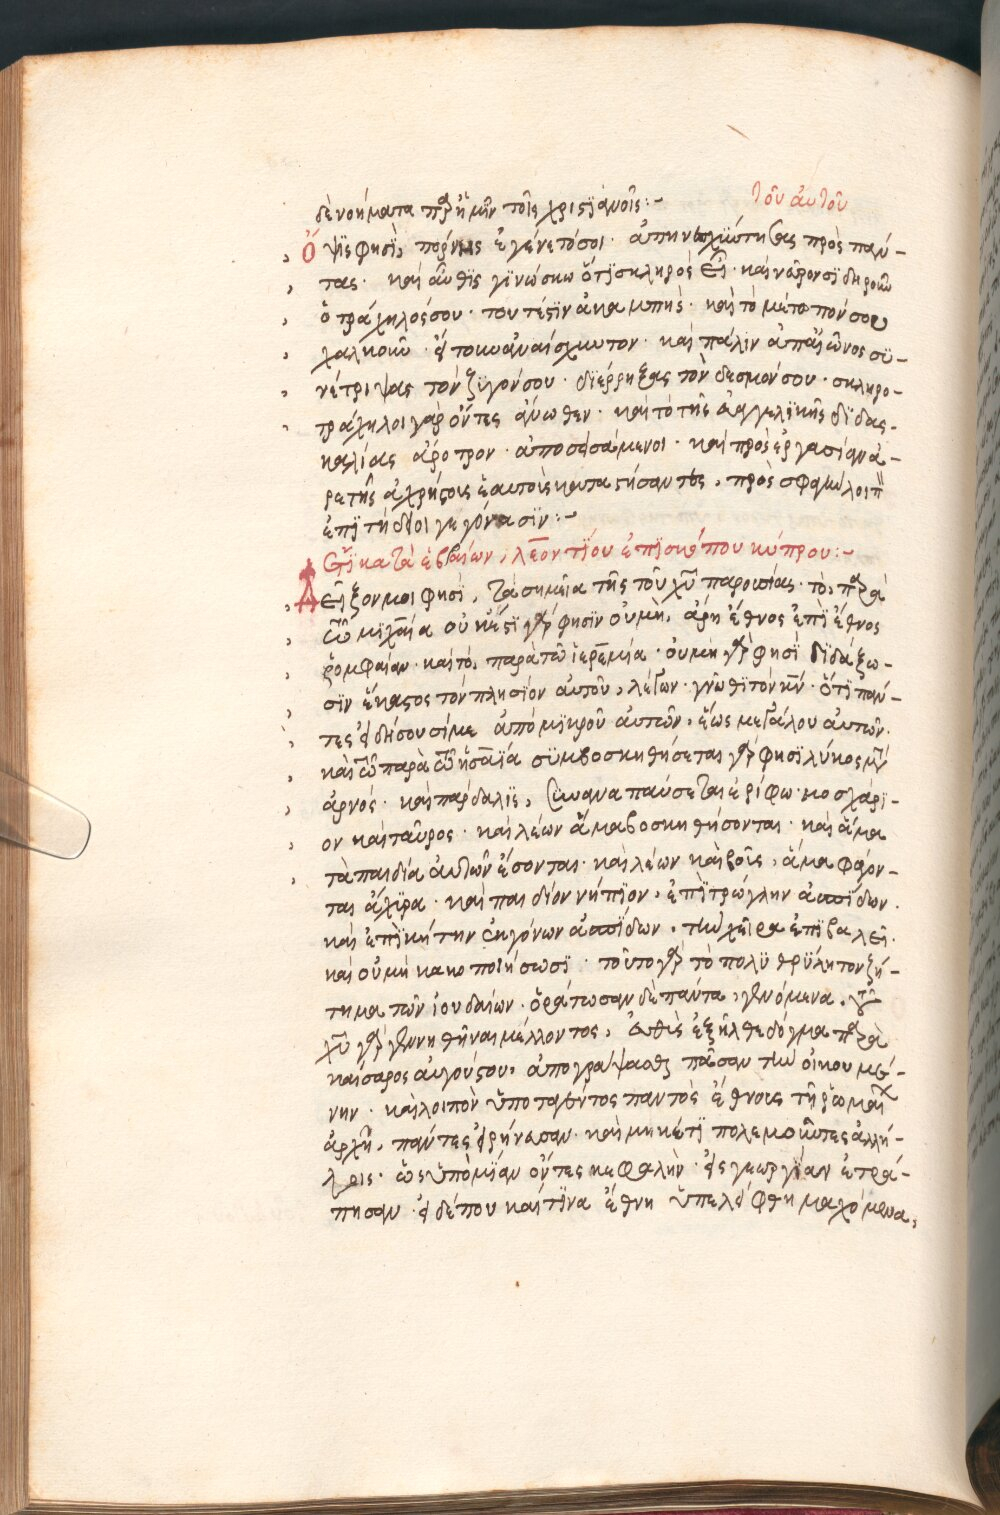 δὲ νοήματα παρ' ἡμῖν τοῖς χριστϊάνοῖς:~ τοῦ αὐτοῦ
Ὄψϊς φησὶ, πόρνης ἐγένετό σοι· ἀπηναισχύντησας πρὸς πάν-
τας· καὶ αὖθϊς γϊνώσκω ὅτϊ σκληρὸς εἶ· καὶ νεῦρον σϊδηροῦν
ὁ τράχηλός σου· τουτέστϊν ἀκαμπὴς· καὶ τὸ μέτωπόν σου
χαλκοῦν· ἤτοι ἀναίσχυντον· καὶ πάλϊν ἀπ' αἰῶνος συ-
νέτριψας τὸν ζϋγόν σου· δϊέρρηξας τὸν δεσμόν σου· σκληρο-
τράχηλοι γὰρ ὄντες ἄνωθεν· καὶ τὸ τῆς εὐαγγελϊκῆς δϊδας-
καλίας ἄροτρον· ἀποσεισάμενοι· καὶ πρὸς ἐργασίαν ἀ-
ρετῆς ἀχρήστους ἑαυτοὺς καταστήσαντες, πρὸς σφαγὴν λοιπ
ἐπϊτήδειοι γεγόνασϊν:~
Ἔτϊ κατὰ ἑβραίων, λεοντίου ἐπϊσκόπου κύπρου:~
Δεῖξον μοι φησὶ, τὰ σημεῖα τῆς τοῦ χυ παρουσίας· τὸ, παρὰ
τῶ μϊχαία οὐκέτϊ γὰρ φησϊν οὐ μὴ, ἄρη ἔθνος ἐπϊ ἔθνος
ῥομφαίαν· καὶ τὸ, παρὰ τῶ ἱερεμία· οὐ μὴ γὰρ φησὶ δϊδάξω-
σϊν ἕκαστος τὸν πλησίον αὐτοῦ, λέγων· γνῶθϊ τὸν κν· ὅτϊ πάν-
τες εἰδήσουσί με ἀπὸ μϊκροῦ αὐτῶν, ἕως μεγάλου αὐτῶν·
καὶ τῶ παρὰ τῶ ἡσαϊία συμβοσκηθήσεται γὰρ φησὶ λύκος μετ'
ἀρνός· καὶ πάρδαλϊς, συναναπαύσεται ἐρίφω· μοσχάρϊ-
ον καὶ ταῦρος· καὶ λέων ἅμα βοσκηθήσονται· καὶ ἅμα
τὰ παιδία αὐτῶν ἔσονται· καὶ λέων καὶ βοῦς, ἅμα φάγον-
ται ἄχϋρα· καὶ παιδίον νήπϊον, ἐπϊ τρώγλην ἀσπίδων·
καὶ ἐπϊ κοίτην ἐκγόνων ἀσπίδων, τὴν χεῖρα ἐπϊβαλεῖ·
καὶ οὐ μὴ κακοποιήσωσϊ· τοῦτο γὰρ τὸ πολϋθρϋλητον ζή-
τημα τῶν ἰουδαίων· ὁράτωσαν δὲ πάντα, γενόμενα. τοῦ
χυ γὰρ γεννηθῆναι μέλλοντος, εὐθὺς ἐξῆλθε δόγμα παρὰ
καίσαρος αὐγούστου, ἀπογράψασθαι πᾶσαν τὴν οἰκουμέ-
νην· καὶ λοιπὸν ὑποταγέντος παντὸς ἔθνους τῆ ῥωμαϊκ
ἀρχῆ, πάντες εἰρήνευσαν· καὶ μηκέτϊ πολεμοῦντες ἀλλή-
λοις· ὡς ὑπὸ μϊὰν ὄντες κεφαλὴν· εἰς γεωργίαν ἐτρά-
πησαν· εἰ δέ που καὶ τϊνὰ ἔθνη ὑπελείφθη μαχόμενα,